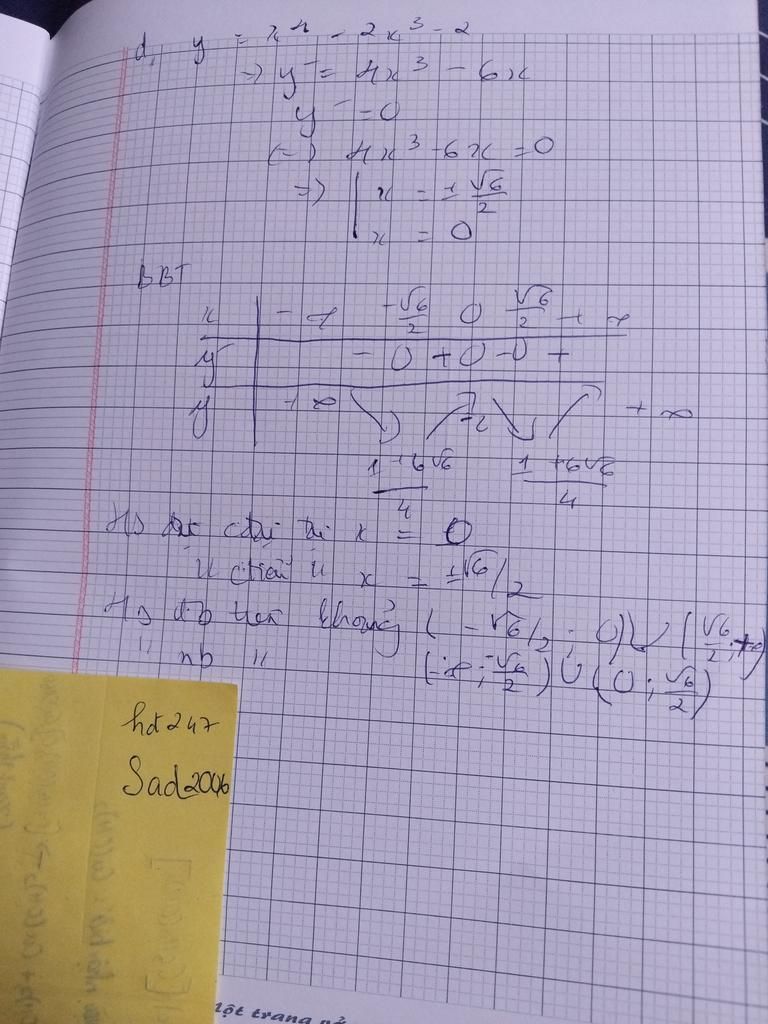 d, y = x⁴ - 2x³ - 2
=> y' = 4x³ - 6x
y' = 0
(=) 4x³ - 6x = 0
=> x = ± √6/2
x = 0
BBT
x - ∞ -√6/2 0 √6/2 + ∞
y' - 0 + 0 - 0 +
y + ∞ -2 + ∞
1 + 6√6 / 4 1 + 6√6 / 4
HS đạt cđại tại x = 0
" ctiểu " x = ±√6/2
HS đb trên khoảng (-√6/2 ; 0) ∪ (√6/2 ; +∞)
" nb " (-∞ ; -√6/2) ∪ (0 ; √6/2)
hot247
Sad2006
một trang